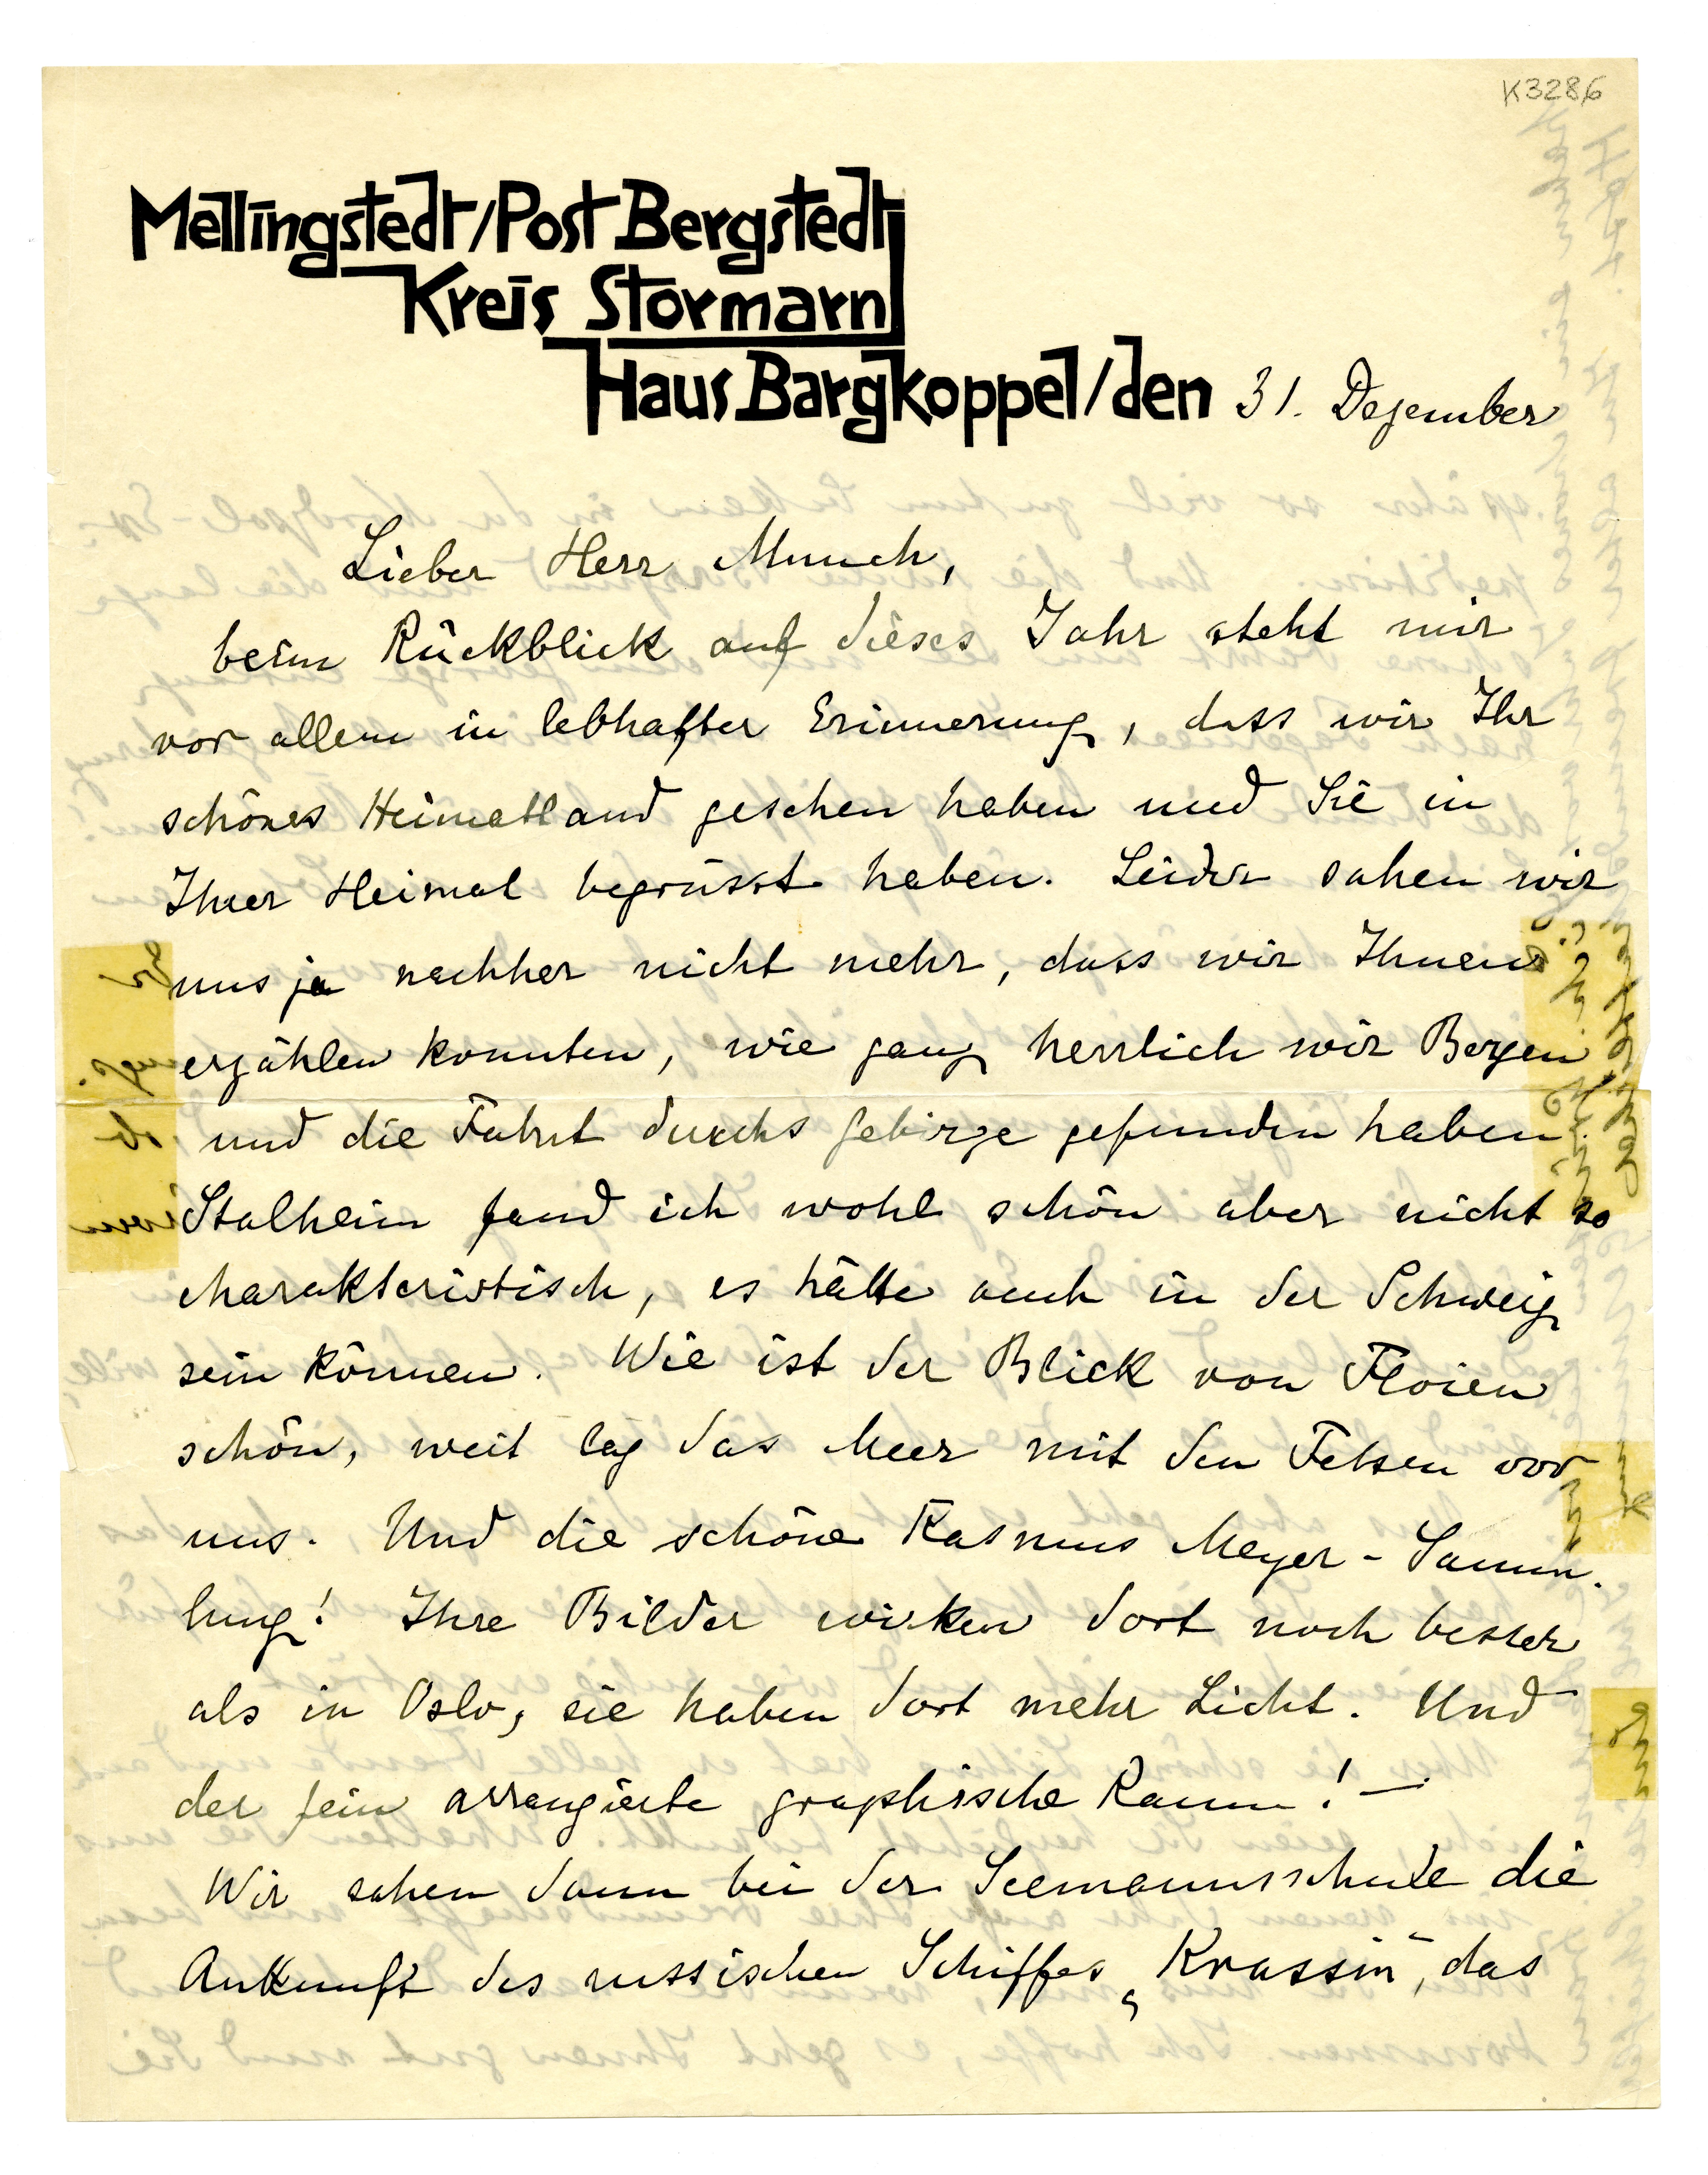 K3286
Mellingstedt/Post Bergstedt
Kreis Stormarn
Haus Bargkoppel/den 31. Dezember
Lieber Herr Munch,
beim Rückblick auf dieses Jahr steht mir
vor allem in lebhafter Erinnerung, dass wir Ihr
schönes Heimatland gesehen haben und Sie in
Ihrer Heimat begrüsst haben. Leider sahen wir
uns ja nachher nicht mehr, dass wir Ihnen
erzählen konnten, wie ganz herrlich wir Bergen
und die Fahrt durchs Gebirge gefunden haben.
Stalheim fand ich wohl schön aber nicht so
charakteristisch, es hätte auch in der Schweiz
sein können. Wie ist der Blick von Floien
schön, weit lag das Meer mit den Felsen vor
uns. Und die schöne Rasmus Meyer-Samm-
lung! Ihre Bilder wirken dort noch besser
als in Oslo, sie haben dort mehr Licht. Und
der fein arrangierte graphische Raum! —
Wir sahen dann bei der Seemannsschule die
Ankunft des russischen Schiffes „Krassin", das